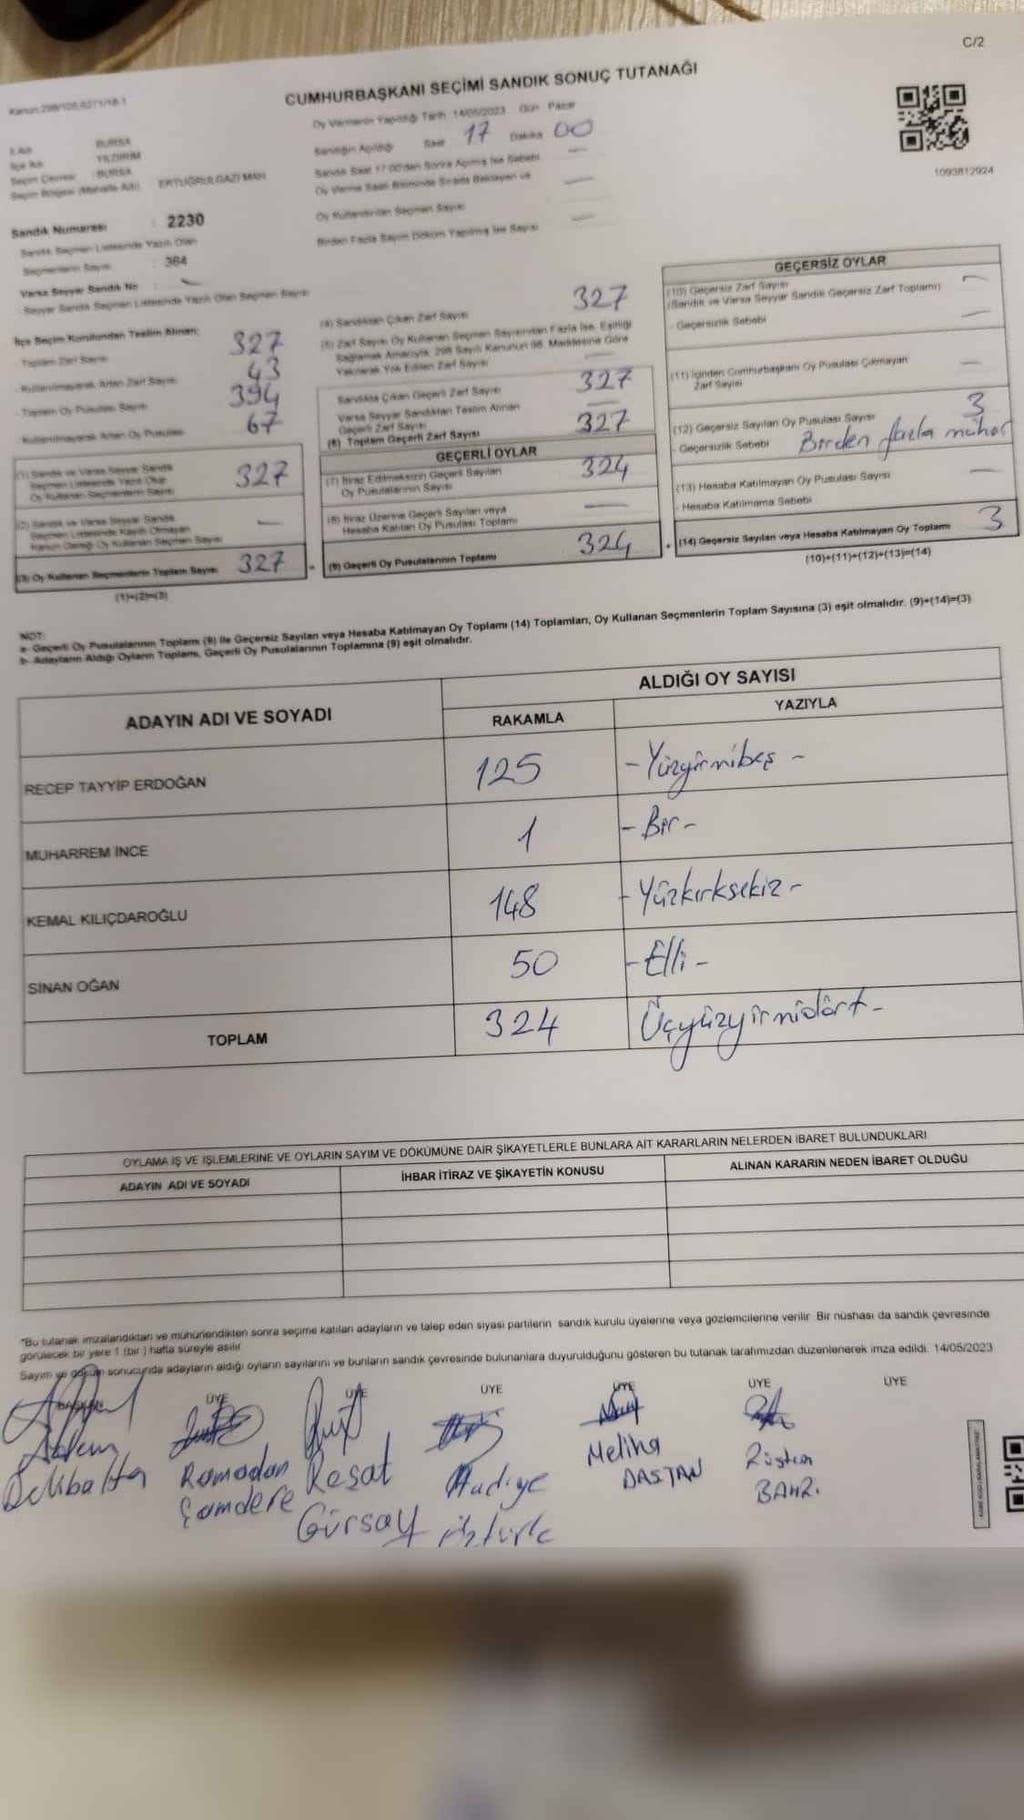 C/2
CUMHURBAŞKANI SEÇİMİ SANDIK SONUÇ TUTANAĞI
Oy Vermenin Yapıldığı Tarih 14/05/2023 Gün Pazar
Sandığın Açıldığı Saat 17 Dakika 00
Sandık Saat 17:00'dan Sonra Açılmış İse Sebebi
1093812924
İl Adı BURSA
İlçe Adı YILDIRIM
Seçim Çevresi BURSA
Seçim Bölgesi (Mahalle Adı) ERTUĞRULGAZİ MAH
Oy Verme Saati Bitiminde Sırada Bekleyen ve
Oy Kullandırılan Seçmen Sayısı
Birden Fazla Sayım Döküm Yapılmış İse Sayısı
Sandık Numarası : 2230
Sandık Seçmen Listesinde Yazılı Olan
Seçmenlerin Sayısı : 364
Varsa Seyyar Sandık No
Seyyar Sandık Seçmen Listesinde Yazılı Olan Seçmen Sayısı
İlçe Seçim Kurulundan Teslim Alınan:
Toplam Zarf Sayısı 327
Kullanılmayarak Artan Zarf Sayısı 43
Toplam Oy Pusulası Sayısı 394
Kullanılmayarak Artan Oy Pusulası 67
(1) Sandık ve Varsa Seyyar Sandık
Seçmen Listesinde Yazılı Olup
Oy Kullanan Seçmenlerin Sayısı 327
(2) Sandık ve Varsa Seyyar Sandık
Seçmen Listesinde Kayıtlı Olmayan
Kanun Gereği Oy Kullanan Seçmen Sayısı -
(3) Oy Kullanan Seçmenlerin Toplam Sayısı 327
(1)+(2)=(3)
(4) Sandıktan Çıkan Zarf Sayısı 327
(5) Zarf Sayısı Oy Kullanan Seçmen Sayısından Fazla İse, Eşitliği
Sağlamak Amacıyla, 298 Sayılı Kanunun 98. Maddesine Göre
Yakılarak Yok Edilen Zarf Sayısı
Sandıkta Çıkan Geçerli Zarf Sayısı 327
Varsa Seyyar Sandıktan Teslim Alınan
Geçerli Zarf Sayısı
(6) Toplam Geçerli Zarf Sayısı 327
GEÇERLİ OYLAR
(7) İtiraz Edilmeksizin Geçerli Sayılan
Oy Pusulalarının Sayısı 324
(8) İtiraz Üzerine Geçerli Sayılan veya
Hesaba Katılan Oy Pusulası Toplamı -
(9) Geçerli Oy Pusulalarının Toplamı 324
GEÇERSİZ OYLAR
(10) Geçersiz Zarf Sayısı
(Sandık ve Varsa Seyyar Sandık Geçersiz Zarf Toplamı) -
- Geçersizlik Sebebi -
(11) İçinden Cumhurbaşkanı Oy Pusulası Çıkmayan
Zarf Sayısı -
(12) Geçersiz Sayılan Oy Pusulası Sayısı 3
- Geçersizlik Sebebi Birden fazla mühür
(13) Hesaba Katılmayan Oy Pusulası Sayısı -
- Hesaba Katılmama Sebebi
(14) Geçersiz Sayılan veya Hesaba Katılmayan Oy Toplamı 3
(10)+(11)+(12)+(13)=(14)
NOT:
a- Geçerli Oy Pusulalarının Toplamı (9) ile Geçersiz Sayılan veya Hesaba Katılmayan Oy Toplamı (14) Toplamları, Oy Kullanan Seçmenlerin Toplam Sayısına (3) eşit olmalıdır. (9)+(14)=(3)
b- Adayların Aldığı Oyların Toplamı, Geçerli Oy Pusulalarının Toplamına (9) eşit olmalıdır.
ADAYIN ADI VE SOYADI
ALDIĞI OY SAYISI
RAKAMLA YAZIYLA
RECEP TAYYİP ERDOĞAN 125 - Yüzyirmibeş -
MUHARREM İNCE 1 - Bir -
KEMAL KILIÇDAROĞLU 148 - Yüzkırksekiz -
SİNAN OĞAN 50 - Elli -
TOPLAM 324 Üçyüzyirmidört -
OYLAMA İŞ VE İŞLEMLERİNE VE OYLARIN SAYIM VE DÖKÜMÜNE DAİR ŞİKAYETLERLE BUNLARA AİT KARARLARIN NELERDEN İBARET BULUNDUKLARI
ADAYIN ADI VE SOYADI İHBAR İTİRAZ VE ŞİKAYETİN KONUSU ALINAN KARARIN NEDEN İBARET OLDUĞU
*Bu tutanak imzalandıktan ve mühürlendikten sonra seçime katılan adayların ve talep eden siyasi partilerin sandık kurulu üyelerine veya gözlemcilerine verilir. Bir nüshası da sandık çevresinde
görülecek bir yere 1 (bir) hafta süreyle asılır.
Sayım ve döküm sonucunda adayların aldığı oyların sayılarını ve bunların sandık çevresinde bulunanlara duyurulduğunu gösteren bu tutanak tarafımızdan düzenlenerek imza edildi. 14/05/2023
ÜYE ÜYE ÜYE ÜYE ÜYE ÜYE
Ramadan Çamdere
Reşat Gürsay
Hadiye Öztürk
Meliha DASTAN
Rüştem